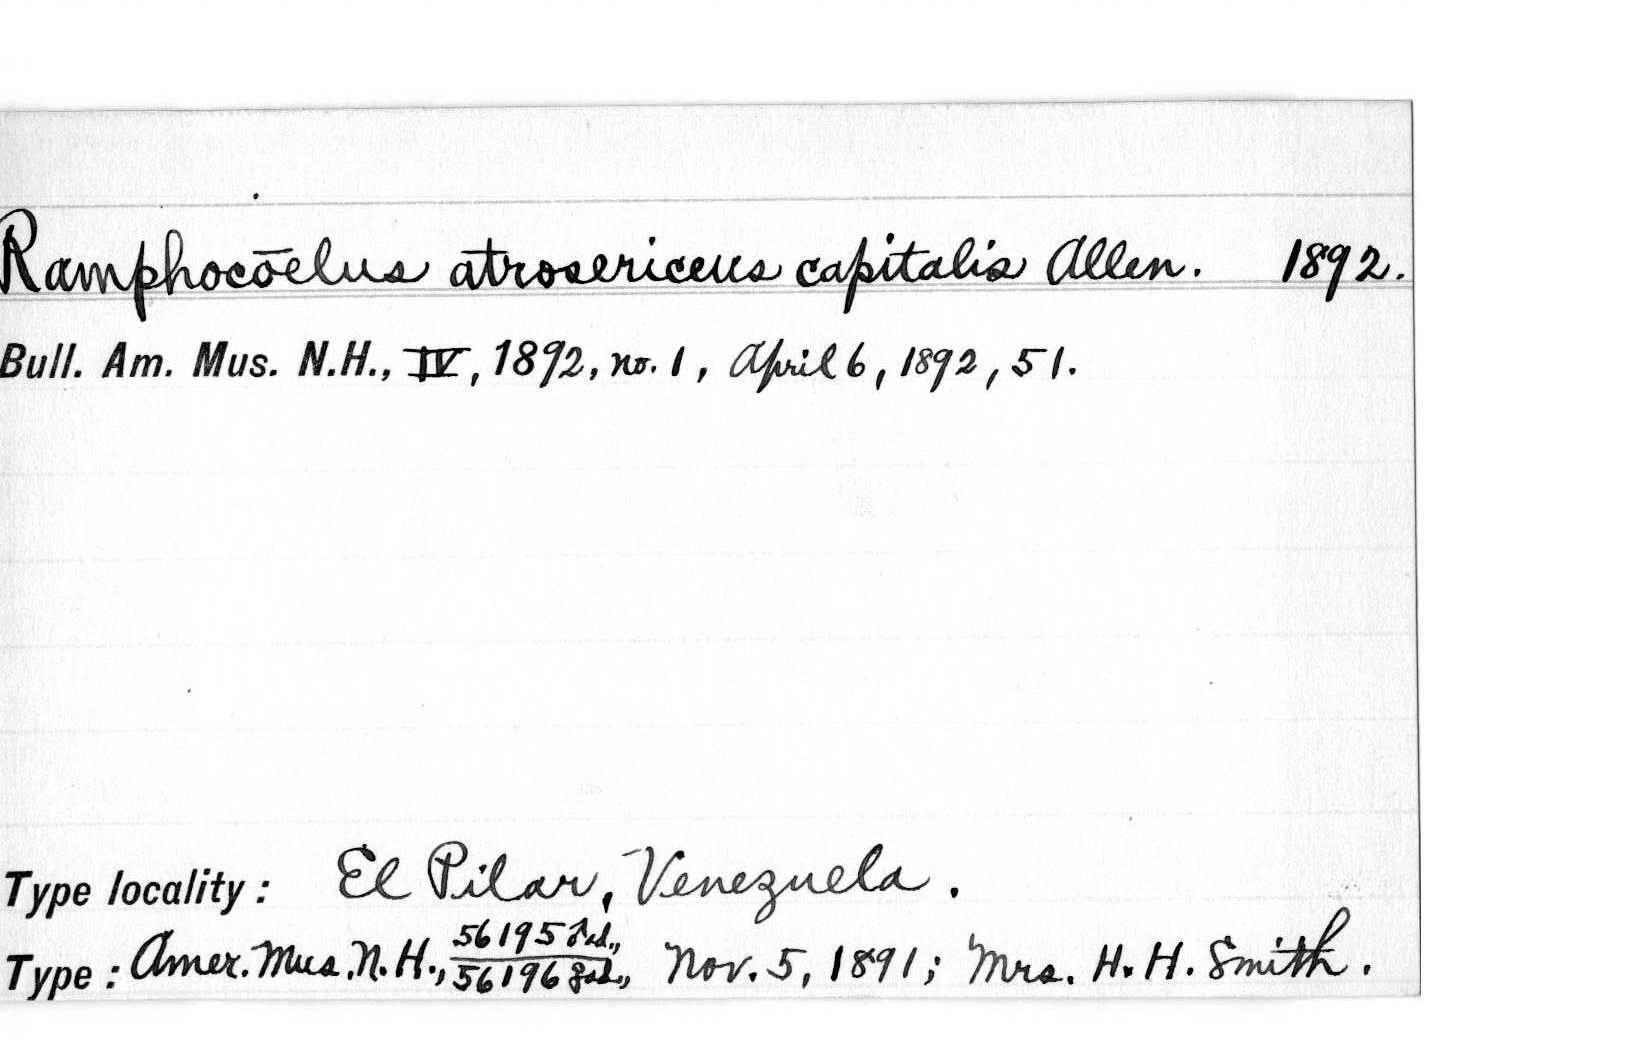 Ramphocōelus atrosericeus capitalis Allen. 1892.
Bull. Am. Mus. N.H., IV, 1892, no. 1, April 6, 1892, 51.
Type locality: El Pilar, Venezuela.
Type: Amer. Mus. N. H., 56195 ♂ ad., / 56196 ♀ ad., Nov. 5, 1891; Mrs. H. H. Smith.